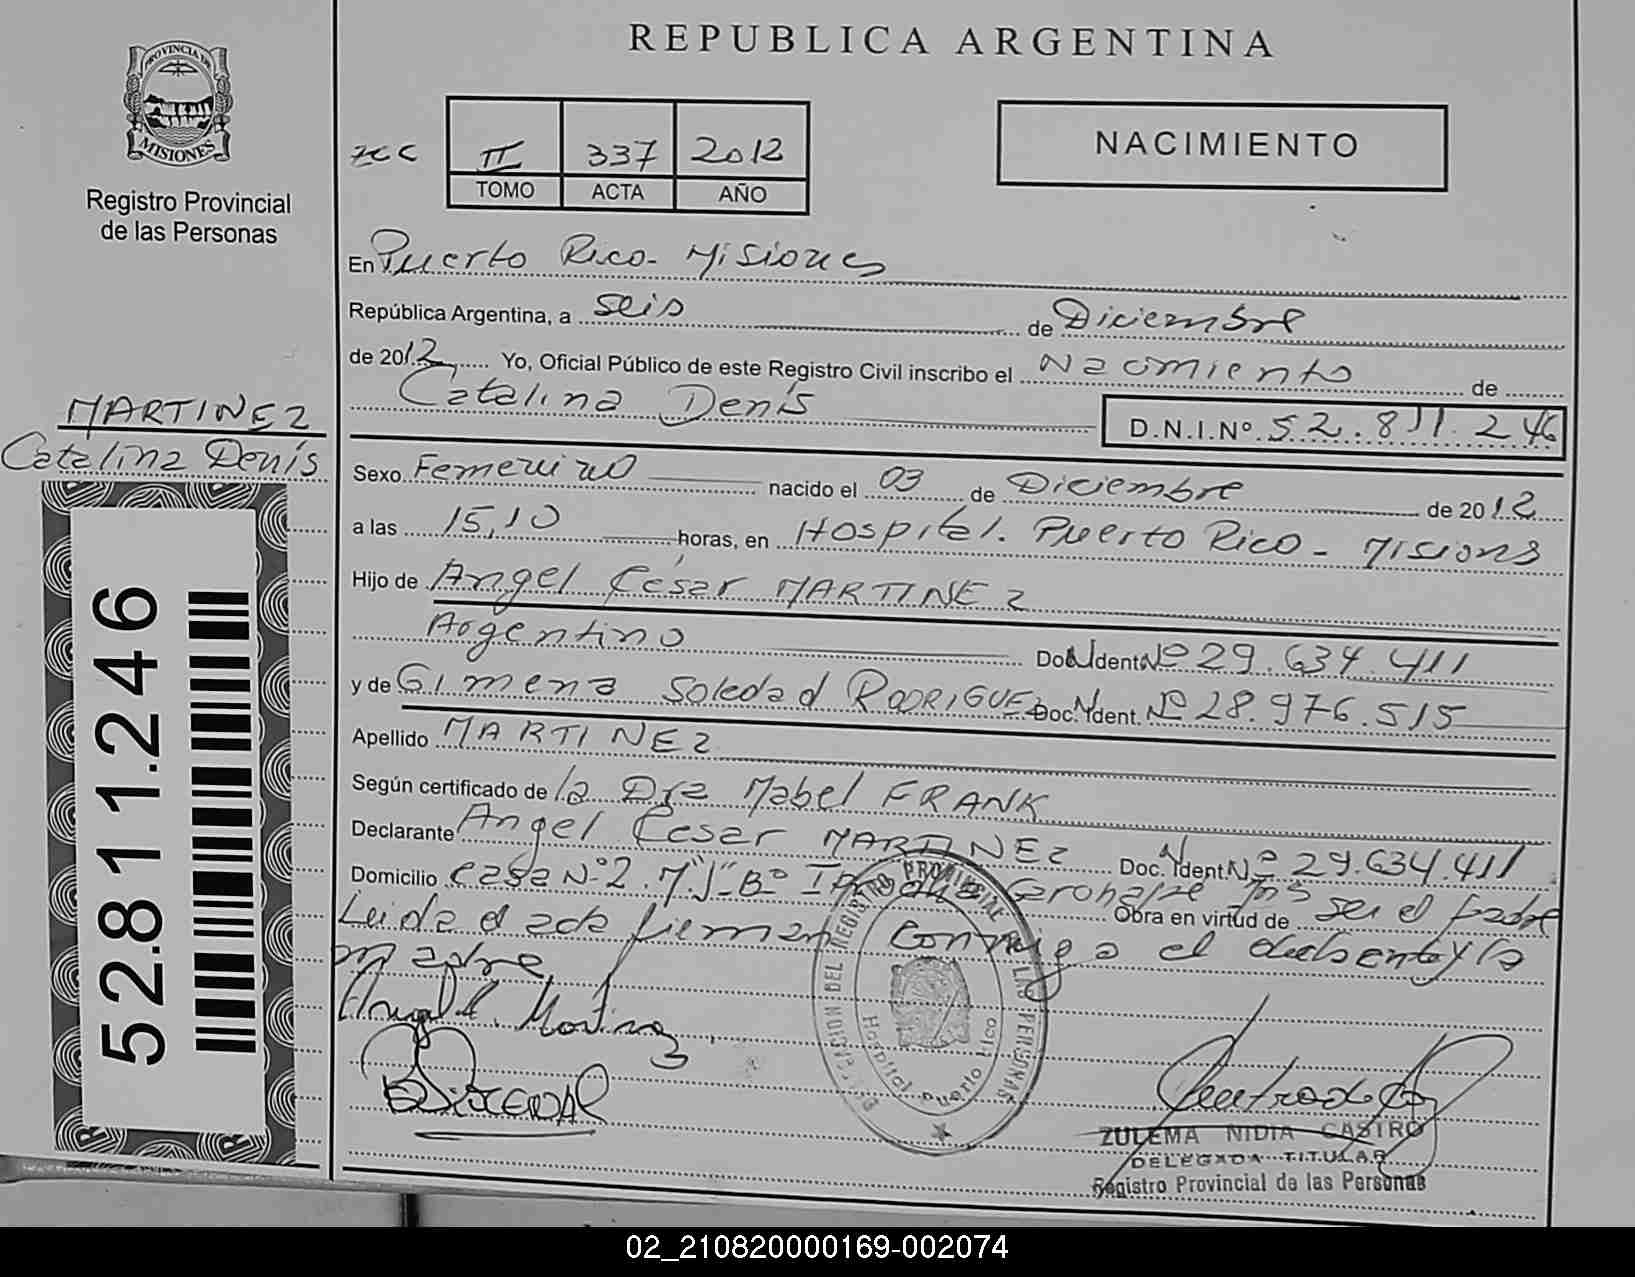 REPUBLICA ARGENTINA
PROVINCIA DE
MISIONES
Registro Provincial
de las Personas
II 337 2012
TOMO ACTA AÑO
NACIMIENTO
En Puerto Rico - Misiones
República Argentina, a seis de Diciembre
de 2012 Yo, Oficial Público de este Registro Civil inscribo el Nacimiento de
Catalina Denís
D.N.I.Nº. 52.811.246
MARTINEZ
Catalina Denís
52.811.246
Sexo Femenino nacido el 03 de Diciembre de 2012
a las 15,10 horas, en Hospital. Puerto Rico - Misiones
Hijo de Angel César MARTINEZ
Argentino Doc. Ident. Nº 29.634.411
y de Gimena Soledad RODRIGUEZ Doc. Ident. Nº 28.976.515
Apellido MARTINEZ
Según certificado de la Dra Mabel FRANK
Declarante Angel César MARTINEZ Doc. Ident. Nº 29.634.411
Domicilio Casa Nº 2. M"J" Bº Garuhape
Obra en virtud de ser el padre
Leida el acta firman conmigo el declarante y la
madre
REGISTRO PROVINCIAL DE LAS PERSONAS
Hospital Puerto Rico
ZULEMA NIDIA CASTRO
DELEGADA TITULAR
Registro Provincial de las Personas
02_210820000169-002074